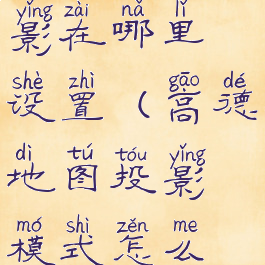 yǐng zài nǎ lǐ
影在哪里
shè zhì gāo dé
设置(高德
dì tú tóu yǐng
地图投影
mó shì zěn me
模式怎么